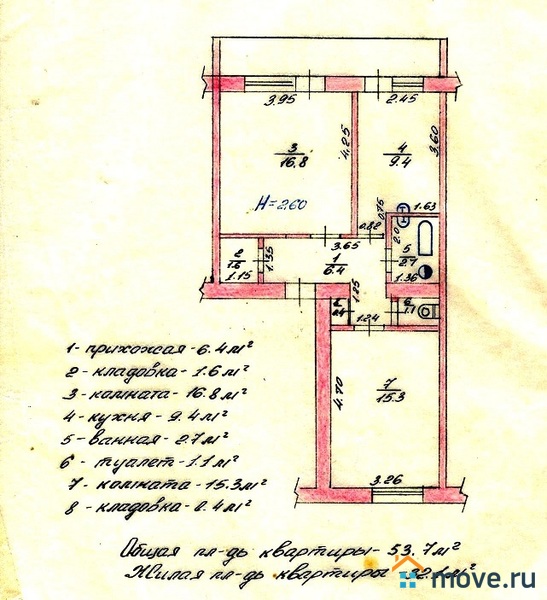 3.95
2.45
3
16.8
4.25
4
9.4
3.60
H=2.60
0.75
1.63
0.82
2.0
3.65
2
1.6
1.35
1.15
1
6.4
5
2.7
1.36
1.25
6
1.1
1.24
4.70
7
15.3
3.26
1- прихожая - 6.4 м²
2 - кладовка - 1.6 м²
3 - комната - 16.8 м²
4 - кухня - 9.4 м²
5 - ванная - 2.7 м²
6 - туалет - 1.1 м²
7 - комната - 15.3 м²
8 - кладовка - 0.4 м²
Общая пл-дь квартиры - 53.7 м²
Жилая пл-дь квартиры 32.1 м²
move.ru